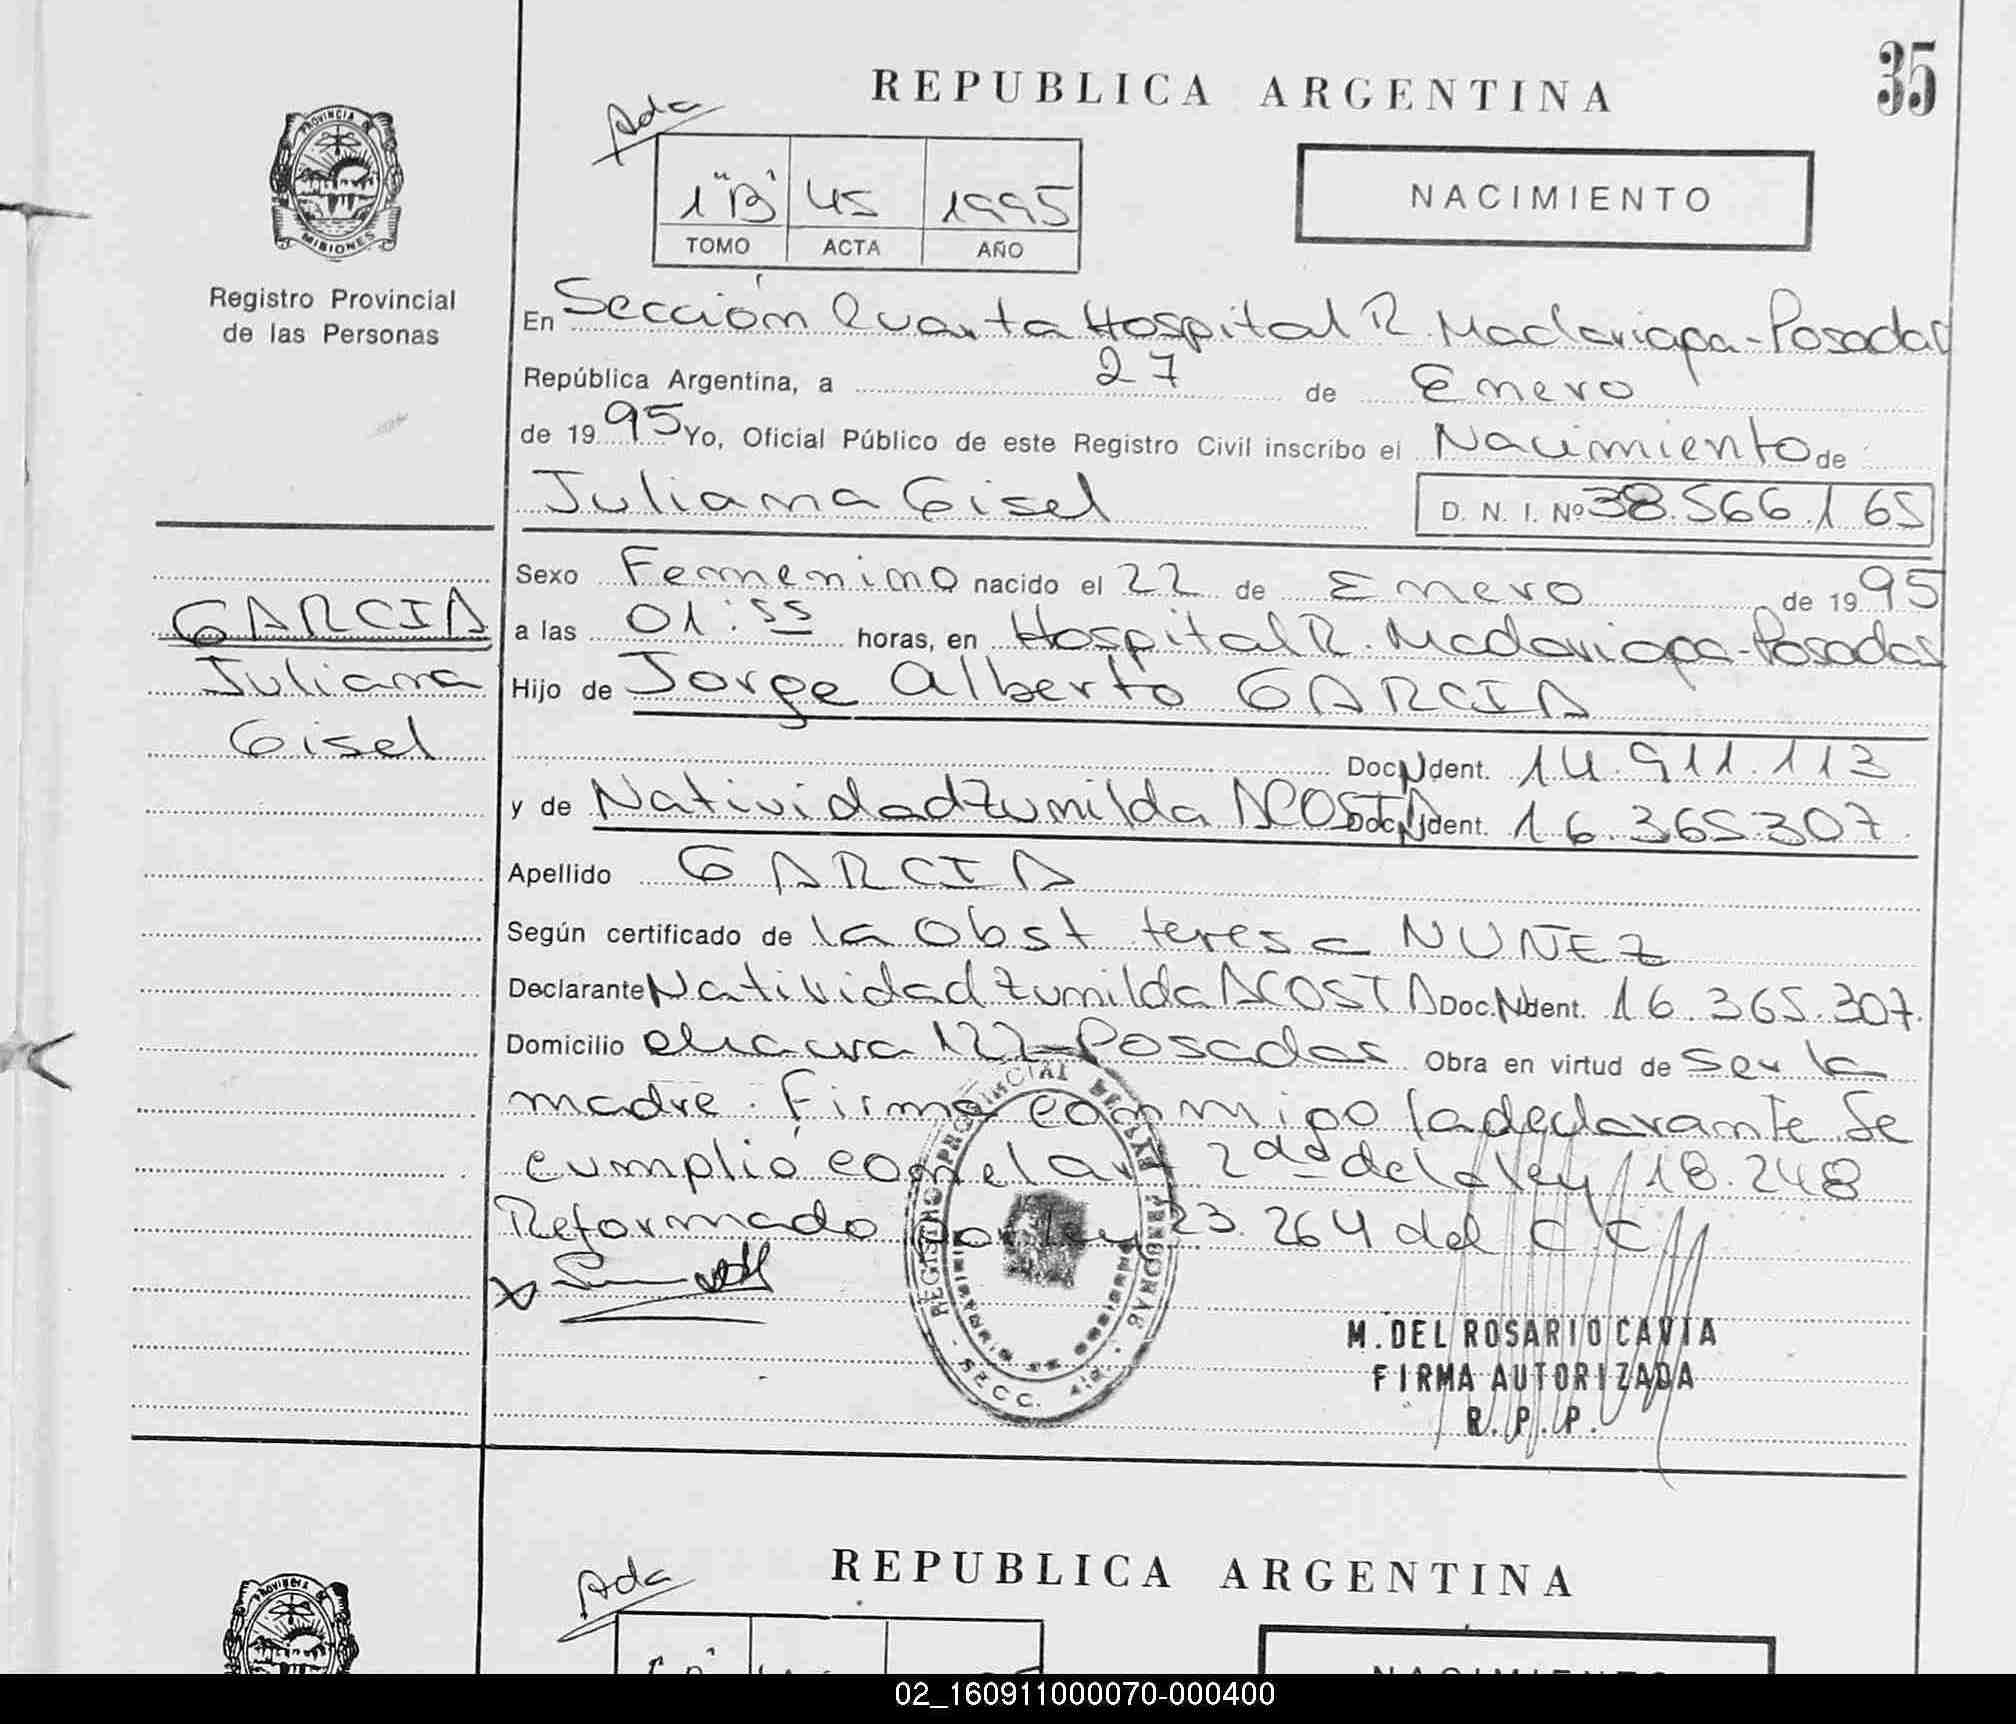 35
REPUBLICA ARGENTINA
Ada
1 "B" 45 1995
TOMO ACTA AÑO
NACIMIENTO
PROVINCIA DE
MISIONES
Registro Provincial
de las Personas
En Sección Quarta Hospital R. Madariaga - Posadas
República Argentina, a 27 de Enero
de 19 95 Yo, Oficial Público de este Registro Civil inscribo el Nacimiento de
Juliana Gisel D. N. I. Nº 38.566.165
GARCIA
Juliana
Gisel
Sexo Femenino nacido el 22 de Enero de 19 95
a las 01:55 horas, en Hospital R. Madariaga - Posadas
Hijo de Jorge Alberto GARCIA
Doc. Ident. 14.911.113
y de Natividad Zunilda ACOSTA Doc. Ident. 16.365.307.
Apellido GARCIA
Según certificado de la Obst teresa NUÑEZ
Declarante Natividad Zunilda ACOSTA Doc. Ident. 16.365.307.
Domicilio chacra 122 - Posadas Obra en virtud de ser la
madre. Firma conmigo la declarante Se
cumplió con el art 2do de la ley 18.248
Reformado por ley 23.264 del C C
REGISTRO PROVINCIAL DE LAS PERSONAS
SECC. 4ta.
M. DEL ROSARIO CAVIA
FIRMA AUTORIZADA
R. P. P.
REPUBLICA ARGENTINA
Ada
NACIMIENTO
02_160911000070-000400